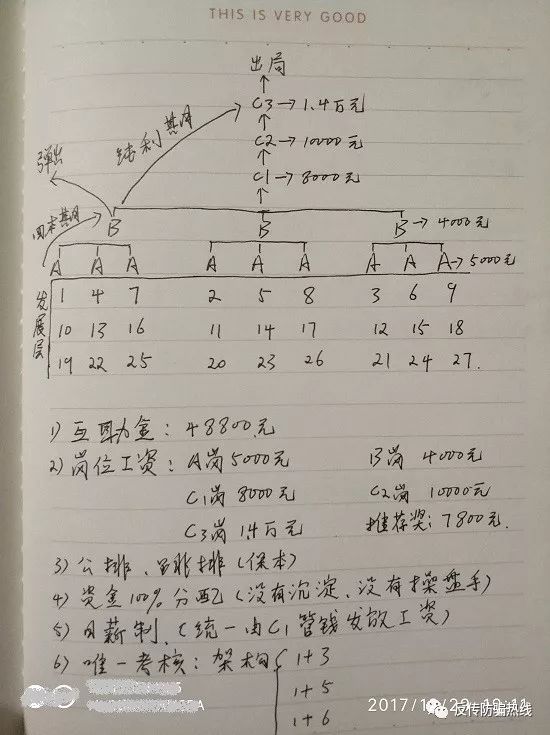 THIS IS VERY GOOD
出局
C3→1.4万元
纯利其月
C2→10000元
弹出
C1→8000元
回本其月
B B B→4000元
A A A A A A A A A→5000元
发展层
1 4 7 2 5 8 3 6 9
10 13 16 11 14 17 12 15 18
19 22 25 20 23 26 21 24 27.
1) 互助金：48800元
2) 岗位工资：A岗5000元 B岗 4000元
C1岗 8000元 C2岗 10000元
C3岗 1.4万元 推荐奖：7800元.
3) 公排、非排(保本)
4) 资金100%分配(没有沉淀、没有操盘手)
5) 月薪制、(统一由C1管钱发放工资)
6) 唯一考核：架构 1+3
1+5
1+6
反传防骗热线